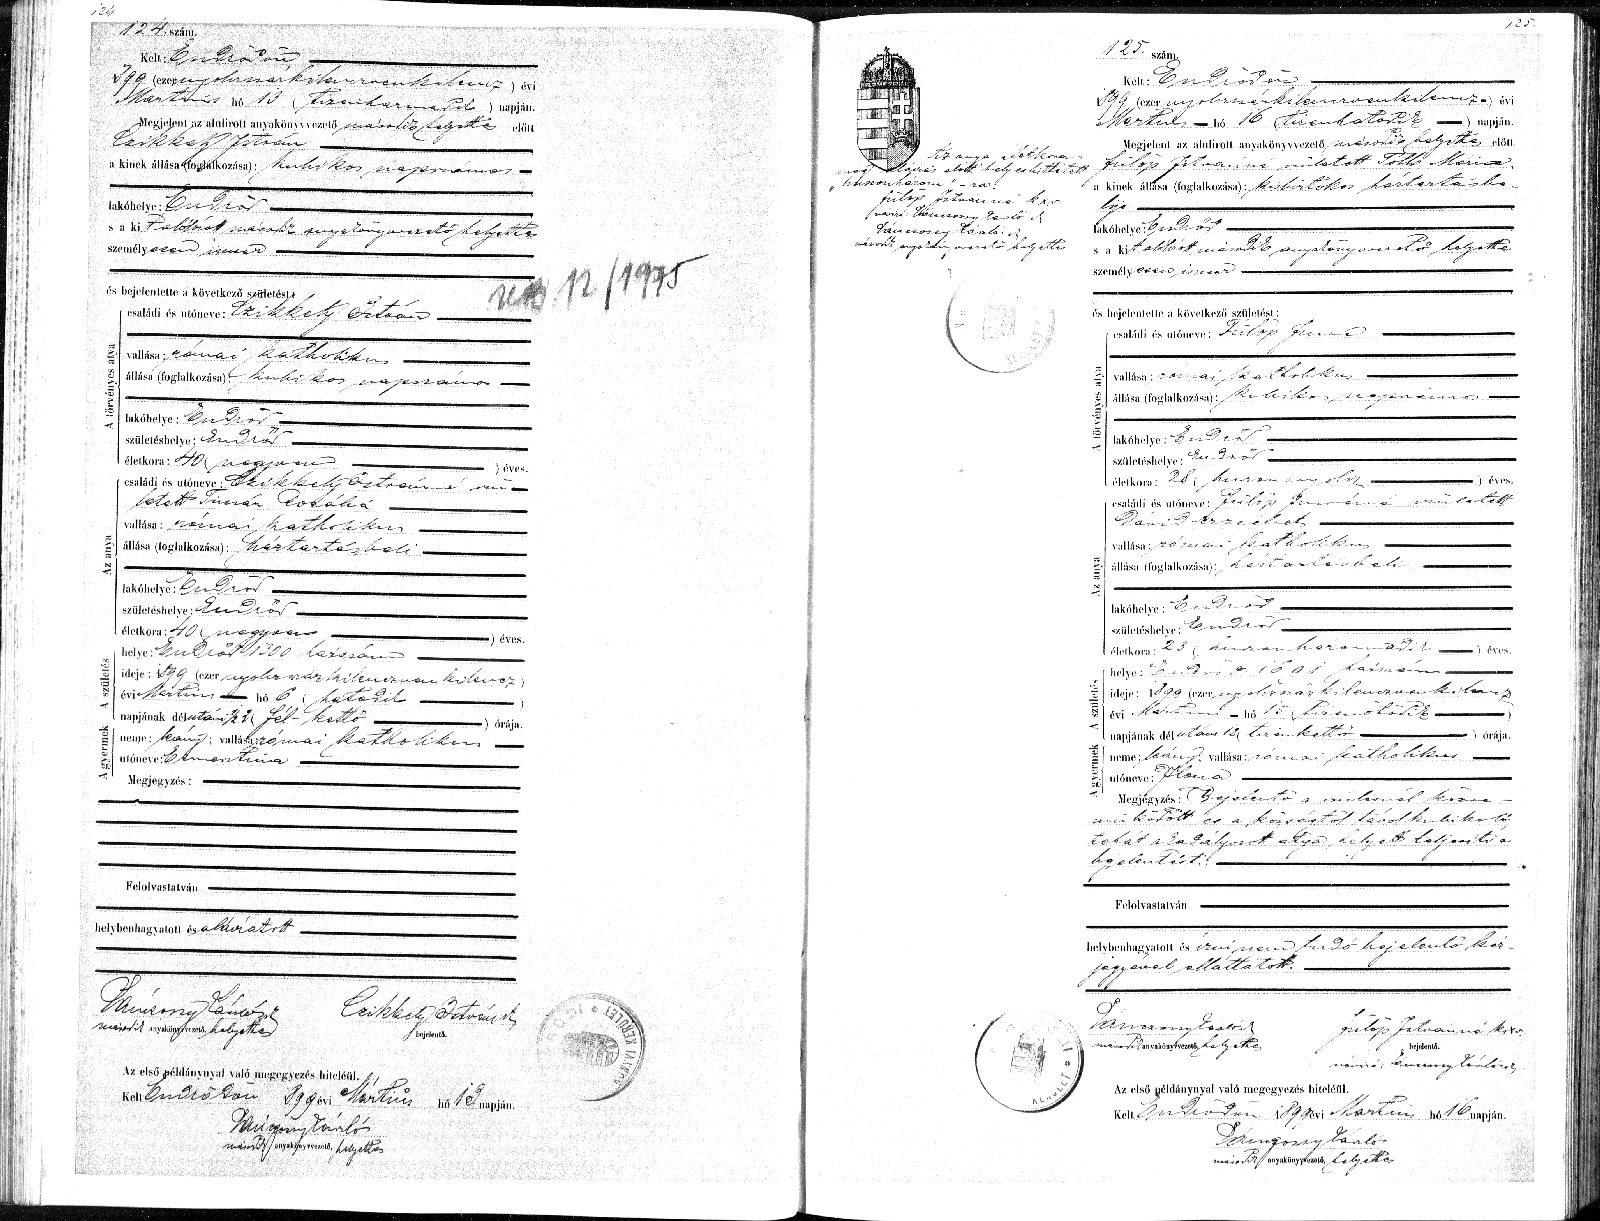 124
124. szám.
Kelt: Endrődön
899 (ezer nyolczszázkilenczvenkilencz) évi
Martius hó 13 (tizenharmadik) napján.
Megjelent az alulirott anyakönyvvezető második helyettes előtt
Czikkely István
a kinek állása (foglalkozása): kubikos napszámos
lakóhelye: Endrőd
s a kit alólirott másodk. anyakönyvvezető helyettes
személyesen ismer
és bejelentette a következő születést:
A törvényes atya
családi és utóneve: Czikkely István
vallása: római katholikus
állása (foglalkozása): kubikos napszámos
lakóhelye: Endrőd
születéshelye: Endrőd
életkora: 40 (negyven) éves.
Az anya
családi és utóneve: Czikkely Istvánné szü-
letett Timár Rozália
vallása: római katholikus
állása (foglalkozása): háztartásbeli
lakóhelye: Endrőd
születéshelye: Endrőd
életkora: 40 (negyven) éves.
A születés
helye: Endrőd 1300 házszám
ideje: 1899 (ezer nyolczszázkilenczvenkilencz)
évi Martius hó 6 (hatodik)
napjának délutáni 1/2 2 (fél kettő) órája.
A gyermek
neme: leány; vallása: római katholikus
utóneve: Ernesztina
Megjegyzés:
Felolvastatván
helybenhagyatott és aláiratott
Czikkely István
másodk anyakönyvvezető, helyettes
bejelentő.
Az első példánynyal való megegyezés hiteléül.
Kelt Endrődön 899 évi Mártius hó 13 napján.
másodk anyakönyvvezető, helyettes
12/1975
125
125. szám.
Kelt: Endrődön
899 (ezer nyolczszázkilenczvenkilencz) évi
Martius hó 16 (tizenhatodik) napján.
Megjelent az alulirott anyakönyvvezető, másodk helyettes előtt
Fülöp Istvánné született Tóth Mária
a kinek állása (foglalkozása): kisbirtokos háztartásbe-
lije
lakóhelye: Endrőd
s a kit alólirott másodk anyakönyvvezető helyettes
személyesen ismer
és bejelentette a következő születést:
A törvényes atya
családi és utóneve: Fülöp Imre
vallása: római katholikus
állása (foglalkozása): kubikos napszámos
lakóhelye: Endrőd
születéshelye: Endrőd
életkora: 28 (huszonnyolcz) éves.
Az anya
családi és utóneve: Fülöp Imréné született
Dávid Erzsébet
vallása: római katholikus
állása (foglalkozása): háztartásbeli
lakóhelye: Endrőd
születéshelye: Endrőd
életkora: 23 éves.
A születés
helye: Endrőd 1601 házszám
ideje: 1899 (ezer nyolczszázkilenczvenkilencz)
évi Martius hó 15 (tizenötödik)
napjának délutáni 12, tizenkettő órája.
A gyermek
neme: leány; vallása: római katholikus
utóneve: Ilona
Megjegyzés: Bejelentő a szülésnél köz-
működött és a községtől távol
tehát akadályozott atya helyett teljesíti a
bejelentést.
Felolvastatván
helybenhagyatott és irni nem tudó bejelentő kéz-
jegyével elláttatott.
Fülöp Istvánné
másodk anyakönyvvezető, helyettes
bejelentő.
Az első példánynyal való megegyezés hiteléül.
Kelt Endrődön 899 évi Martius hó 16 napján.
másodk anyakönyvvezető, helyettes
Az anya életkora
előtt
"huszonhárom"-ra
Fülöp Istvánné
másodk anyakönyvvezető helyettes